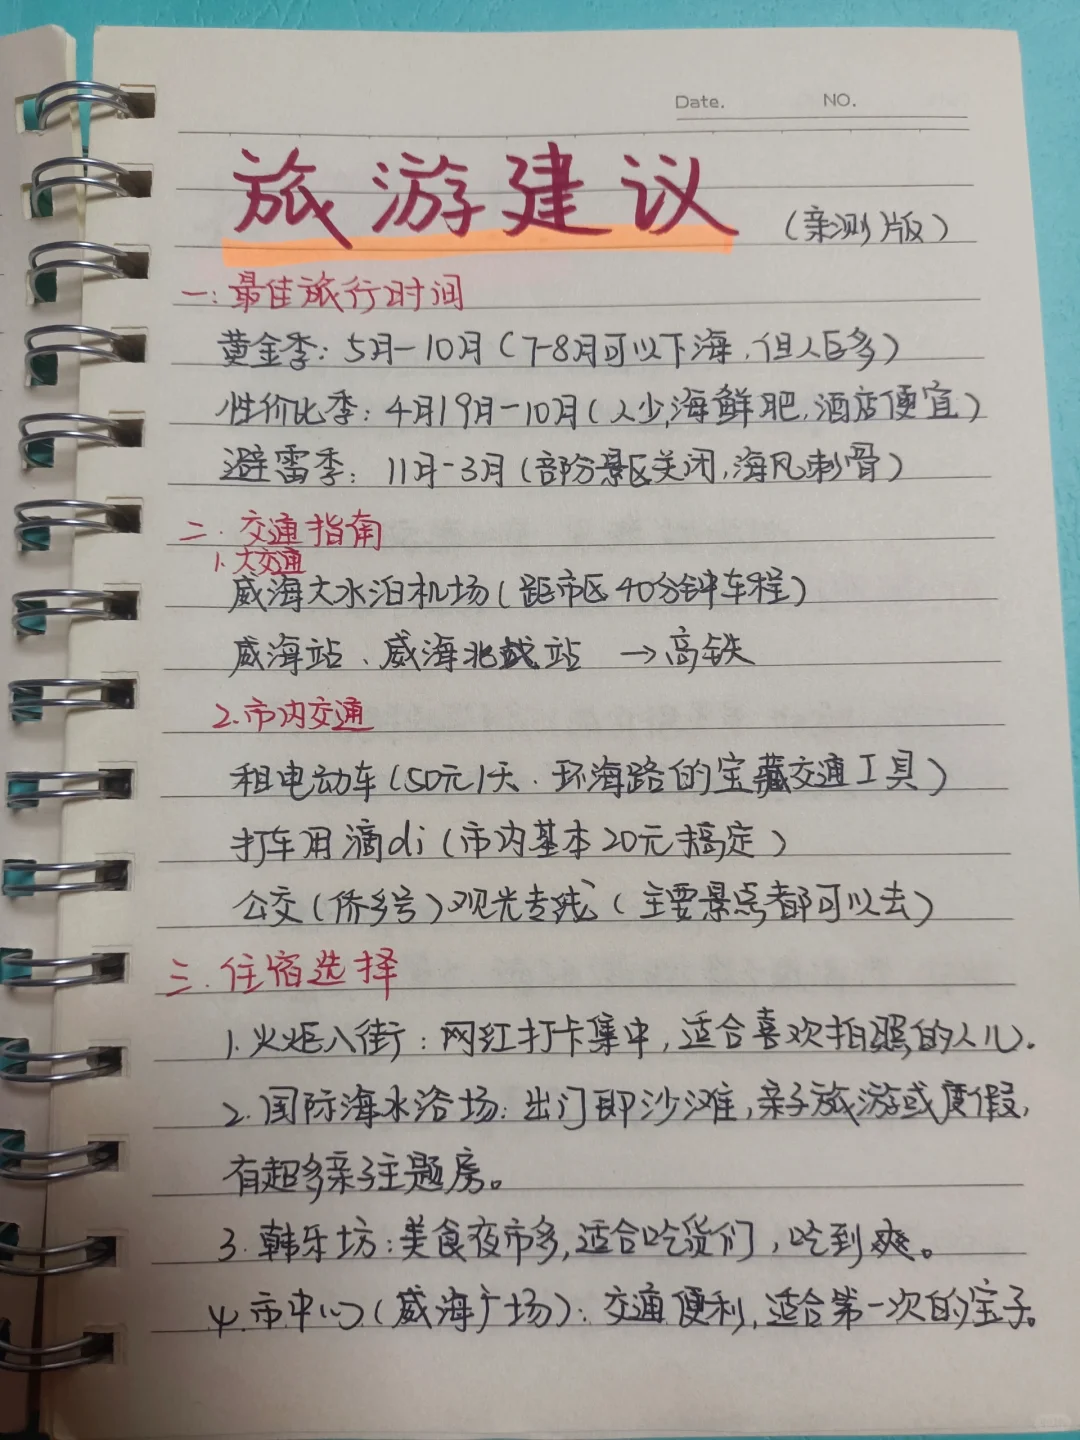 Date. NO.
旅游建议 (亲测片版)
一:最佳旅行时间
黄金季:5月-10月(7-8月可以下海,但人巨多)
性价比季:4月19月-10月(人少,海鲜肥,酒店便宜)
避雷季:11月-3月(部分景区关闭,海风刺骨)
二.交通指南
1.大交通
威海大水泊机场(距市区40分钟车程)
威海站、威海北站 →高铁
2.市内交通
租电动车(50元1天.环海路的宝藏交通工具)
打车用滴di(市内基本20元搞定)
公交(侨乡号)观光专线(主要景点都可以去)
三.住宿选择
1.火炬八街:网红打卡集中,适合喜欢拍照的人儿.
2.国际海水浴场:出门即沙滩,亲子旅游或度假,
有超多亲子主题房。
3.韩乐坊:美食夜市多,适合吃货们,吃到爽。
4.市中心(威海广场):交通便利,适合第一次的宝子。